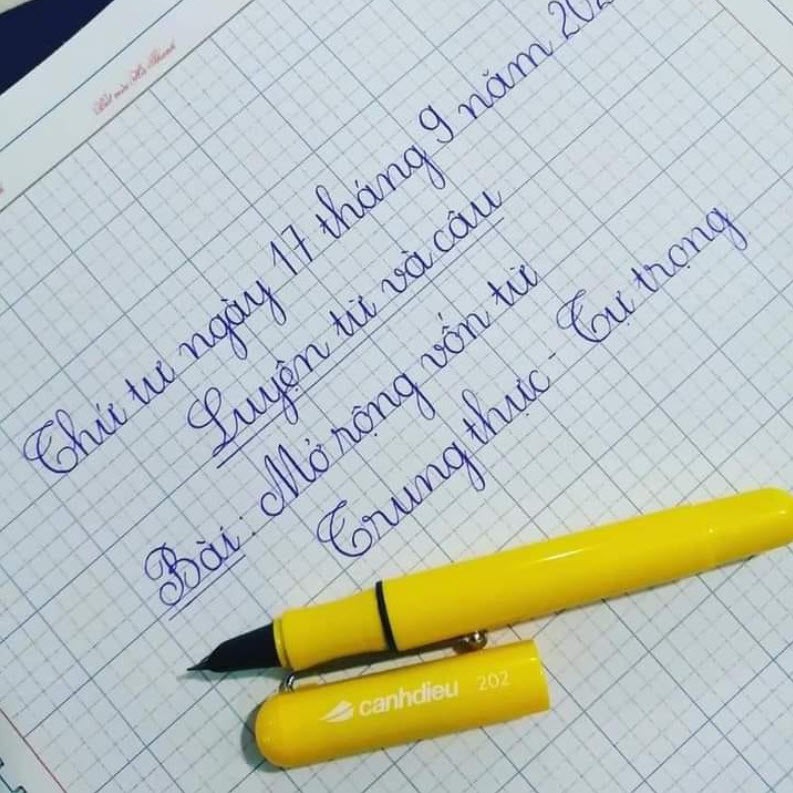 Thứ tư ngày 17 tháng 9 năm
Luyện từ và câu
Bài: Mở rộng vốn từ
Trung thực - Tự trọng
canhdieu 202